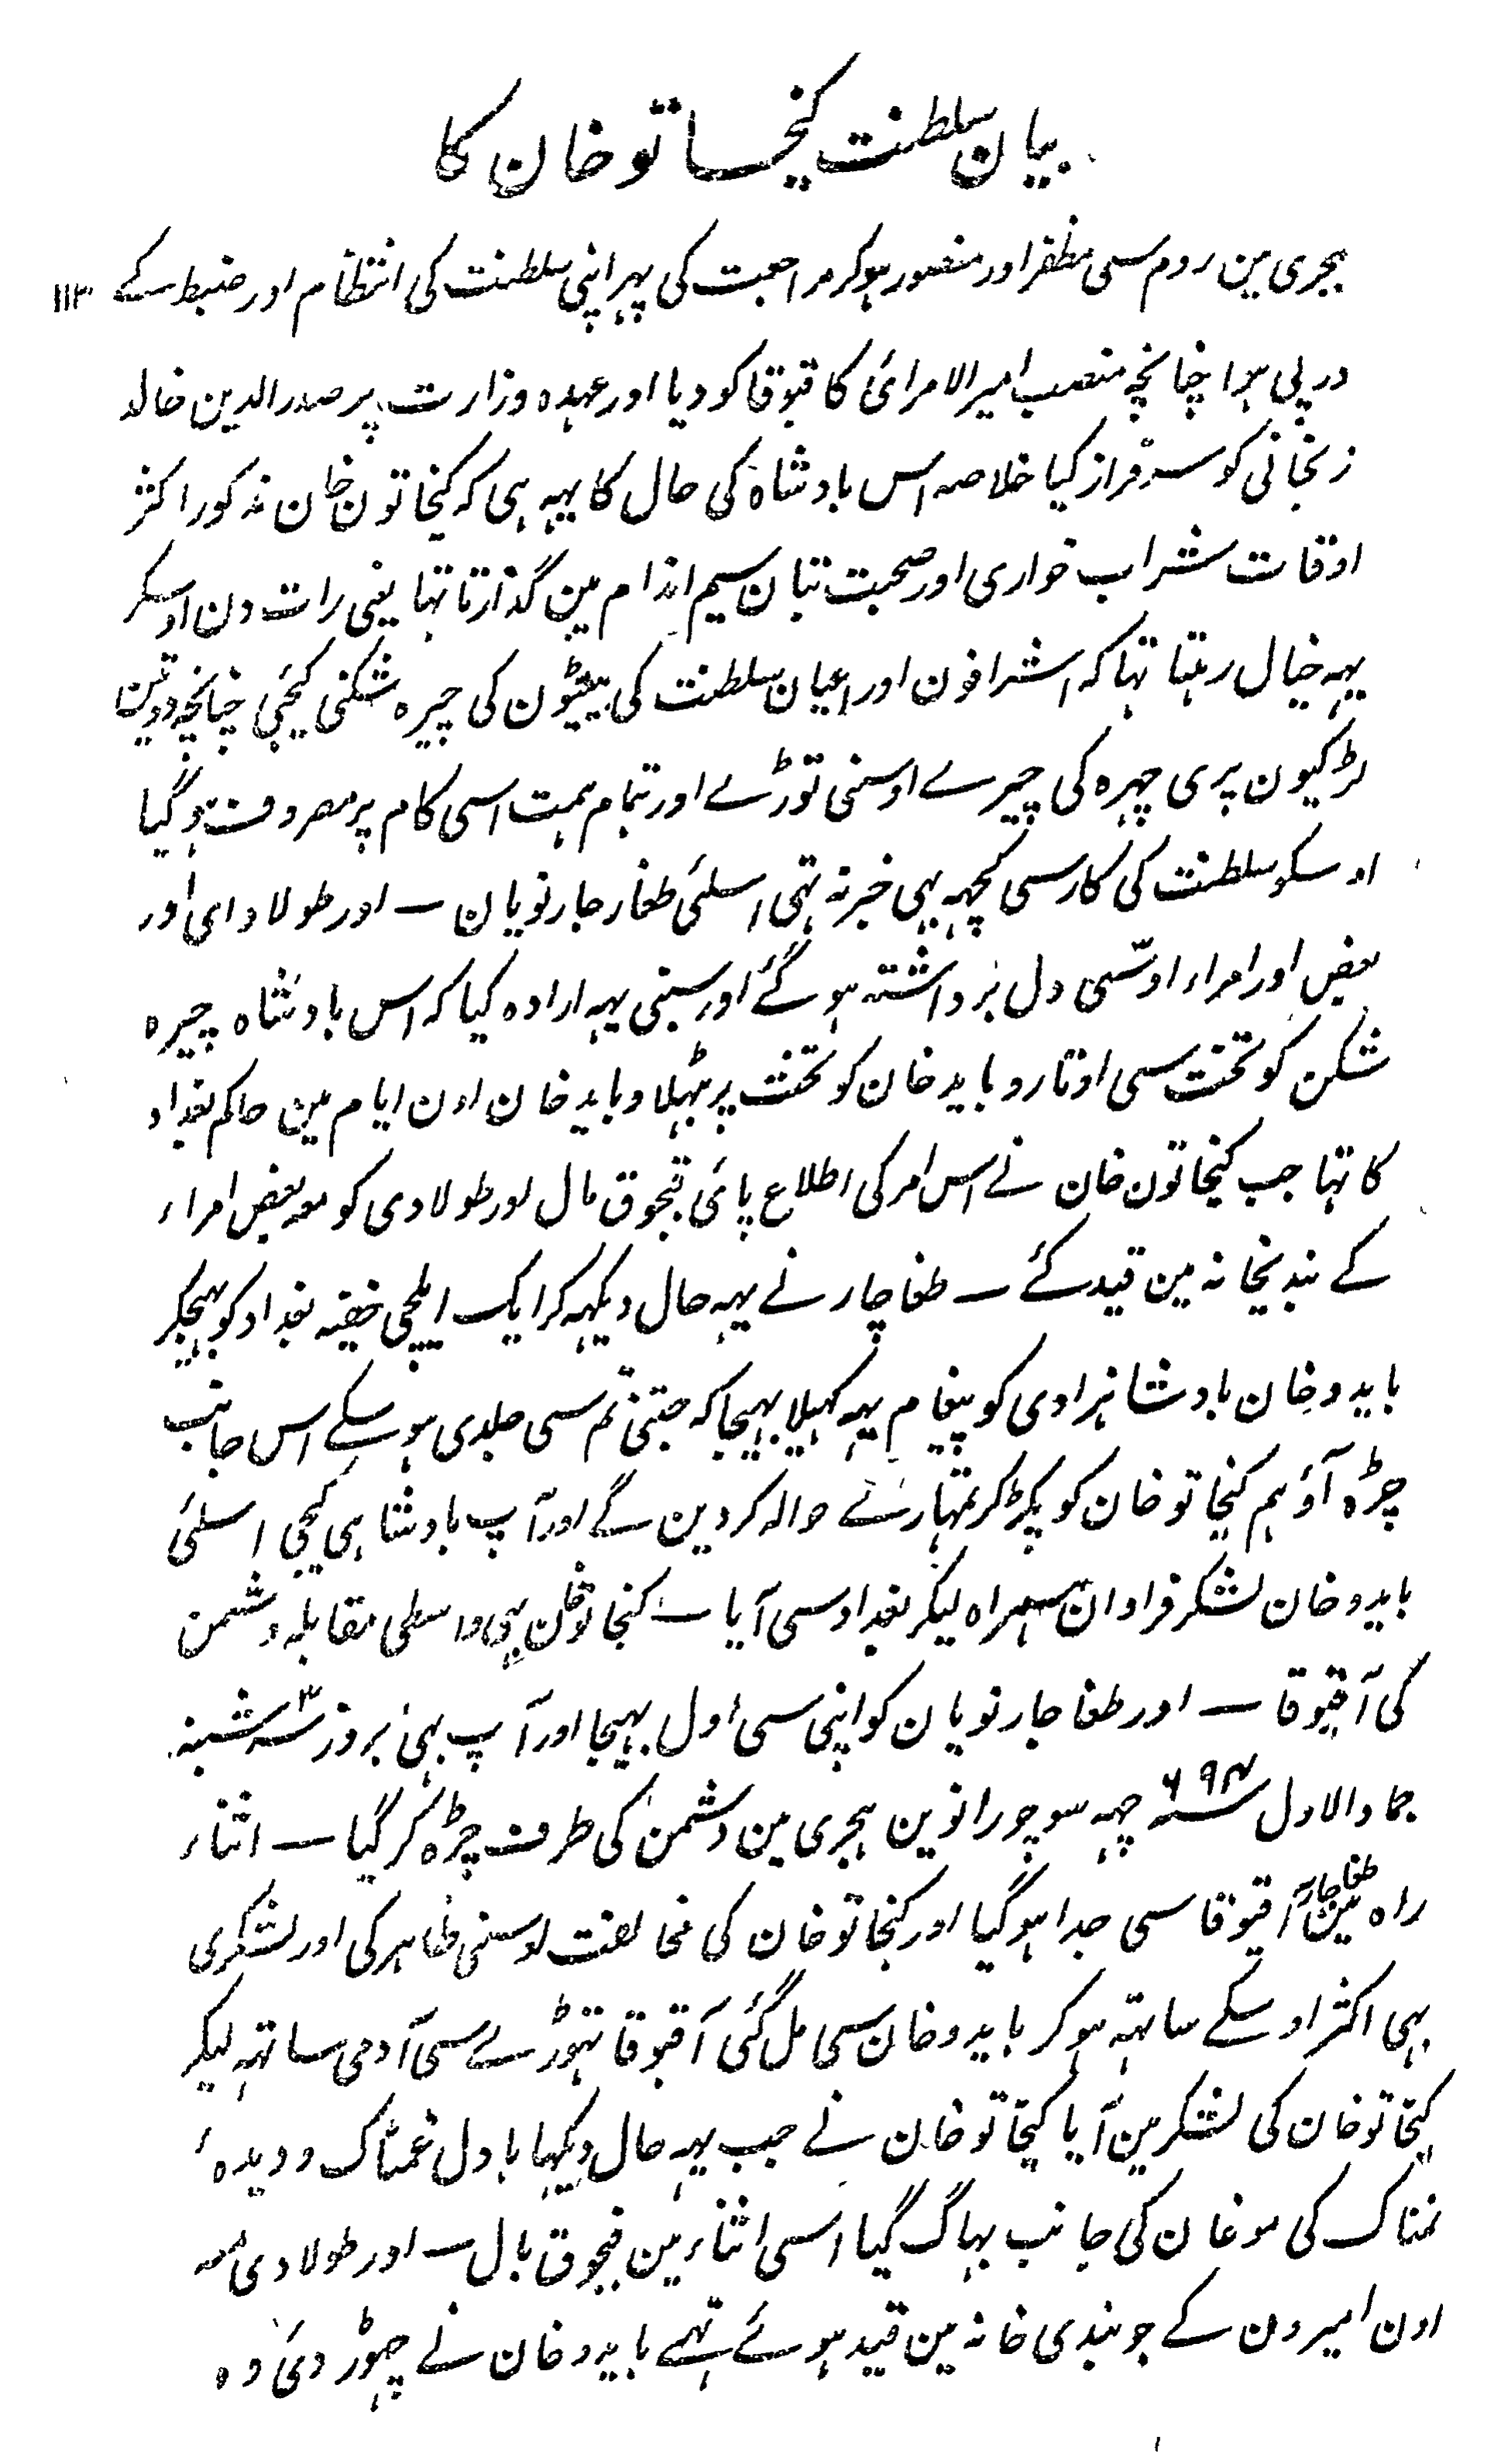 بیان سلطنت کنجاتو خان کا
ہجری مین روم سی مظفر اور منصور ہو کر مراجعت کی پہر اپنی سلطنت کی انتظام اور ضبط کے ۱۱۳
در پی ہوا چنانچہ منصب امیر الامرائی کا قبوقا کو دیا اور عہدہ وزارت پر صدر الدین خالد
زنجانی کو سرفراز کیا خلاصہ اس بادشاہ کی حال کا یہہ ہی کہ کیخاتون خان مذکور اکثر
اوقات شراب خواری اور صحبت بتان سیم اندام مین گذارتا تہا یعنی رات دن اوسکر
یہہ خیال رہتا تہا کہ اشرافون اور اعیان سلطنت کی بیٹیون کی چیرہ شکنی کیجئی چنانچہ دو تین
لڑکیون پری چہرہ کی چیرے اوسنی توڑے اور تمام ہمت اسی کام پر مصروف ہو گیا
اوسکو سلطنت کی کار سی کچہہ بہی خبر نہ تہی اسلئی طغار جار نویان ۔ اور طولادای اور
بعض اور امراء اوسّی دل برداشتہ ہو گئے اور سبنی یہہ ارادہ کیا کہ اس بادشاہ چیرہ
شکن کو تخت سی اوتارو باید خان کو تخت پر بٹہلاو باید خان اون ایام مین حاکم بغداد
کا تہا جب کیخاتون خان نے اس امر کی اطلاع پائی قبجوق مال اور طولادی کو معہ بعض امراء
کے بندیخانہ مین قید کئے ۔ طغاچار نے یہہ حال دیکہہ کر ایک ایلچی خفیہ بغداد کو بہیجکر
بایدو خان بادشاہزادی کو پیغام یہہ کہیلا بہیجا کہ جتنی تم سی جلدی ہو سکے اس جانب
چڑہ آؤ ہم کنجاتو خان کو پکڑ کر تمہارے حوالہ کر دین گے اور آپ بادشاہی کیجی اسلئی
بایدو خان لشکر فراوان ہمراہ لیکر بغداد سی آیا ۔ کنجاتو خان بہی واسطی مقابلہ دشمن
کی آقبوقا ۔ اور طغاجار نویان کو اپنی سی اول بہیجا اور آپ بہی بروز سہ شنبہ
جماد الاول سنہ ۶۹۴ چہہ سو چورانوین ہجری مین دشمن کی طرف چڑہ کر گیا ۔ اثناء
راہ مین طغاجار آقبوقا سی جدا ہو گیا اور کنجاتو خان کی مخالفت اوسنی ظاہر کی اور لشکری
بہی اکثر اوسکے ساتہہ ہو کر بایدو خان سی مل گئی آقبوقا تہوڑے سی آدمی ساتہہ لیکر
کیخاتو خان کی لشکر مین آیا کیخاتو خان نے جب یہہ حال دیکہا با دل غمناک و دیدہٴ
نمناک کی موغان کی جانب بہاگ گیا اسی اثناء مین قبجوق بال ۔ اور طولادی معہ
اون امیرون کے جو بندی خانہ مین قید ہوئے تہے بایدو خان نے چہوڑ دئی وہ